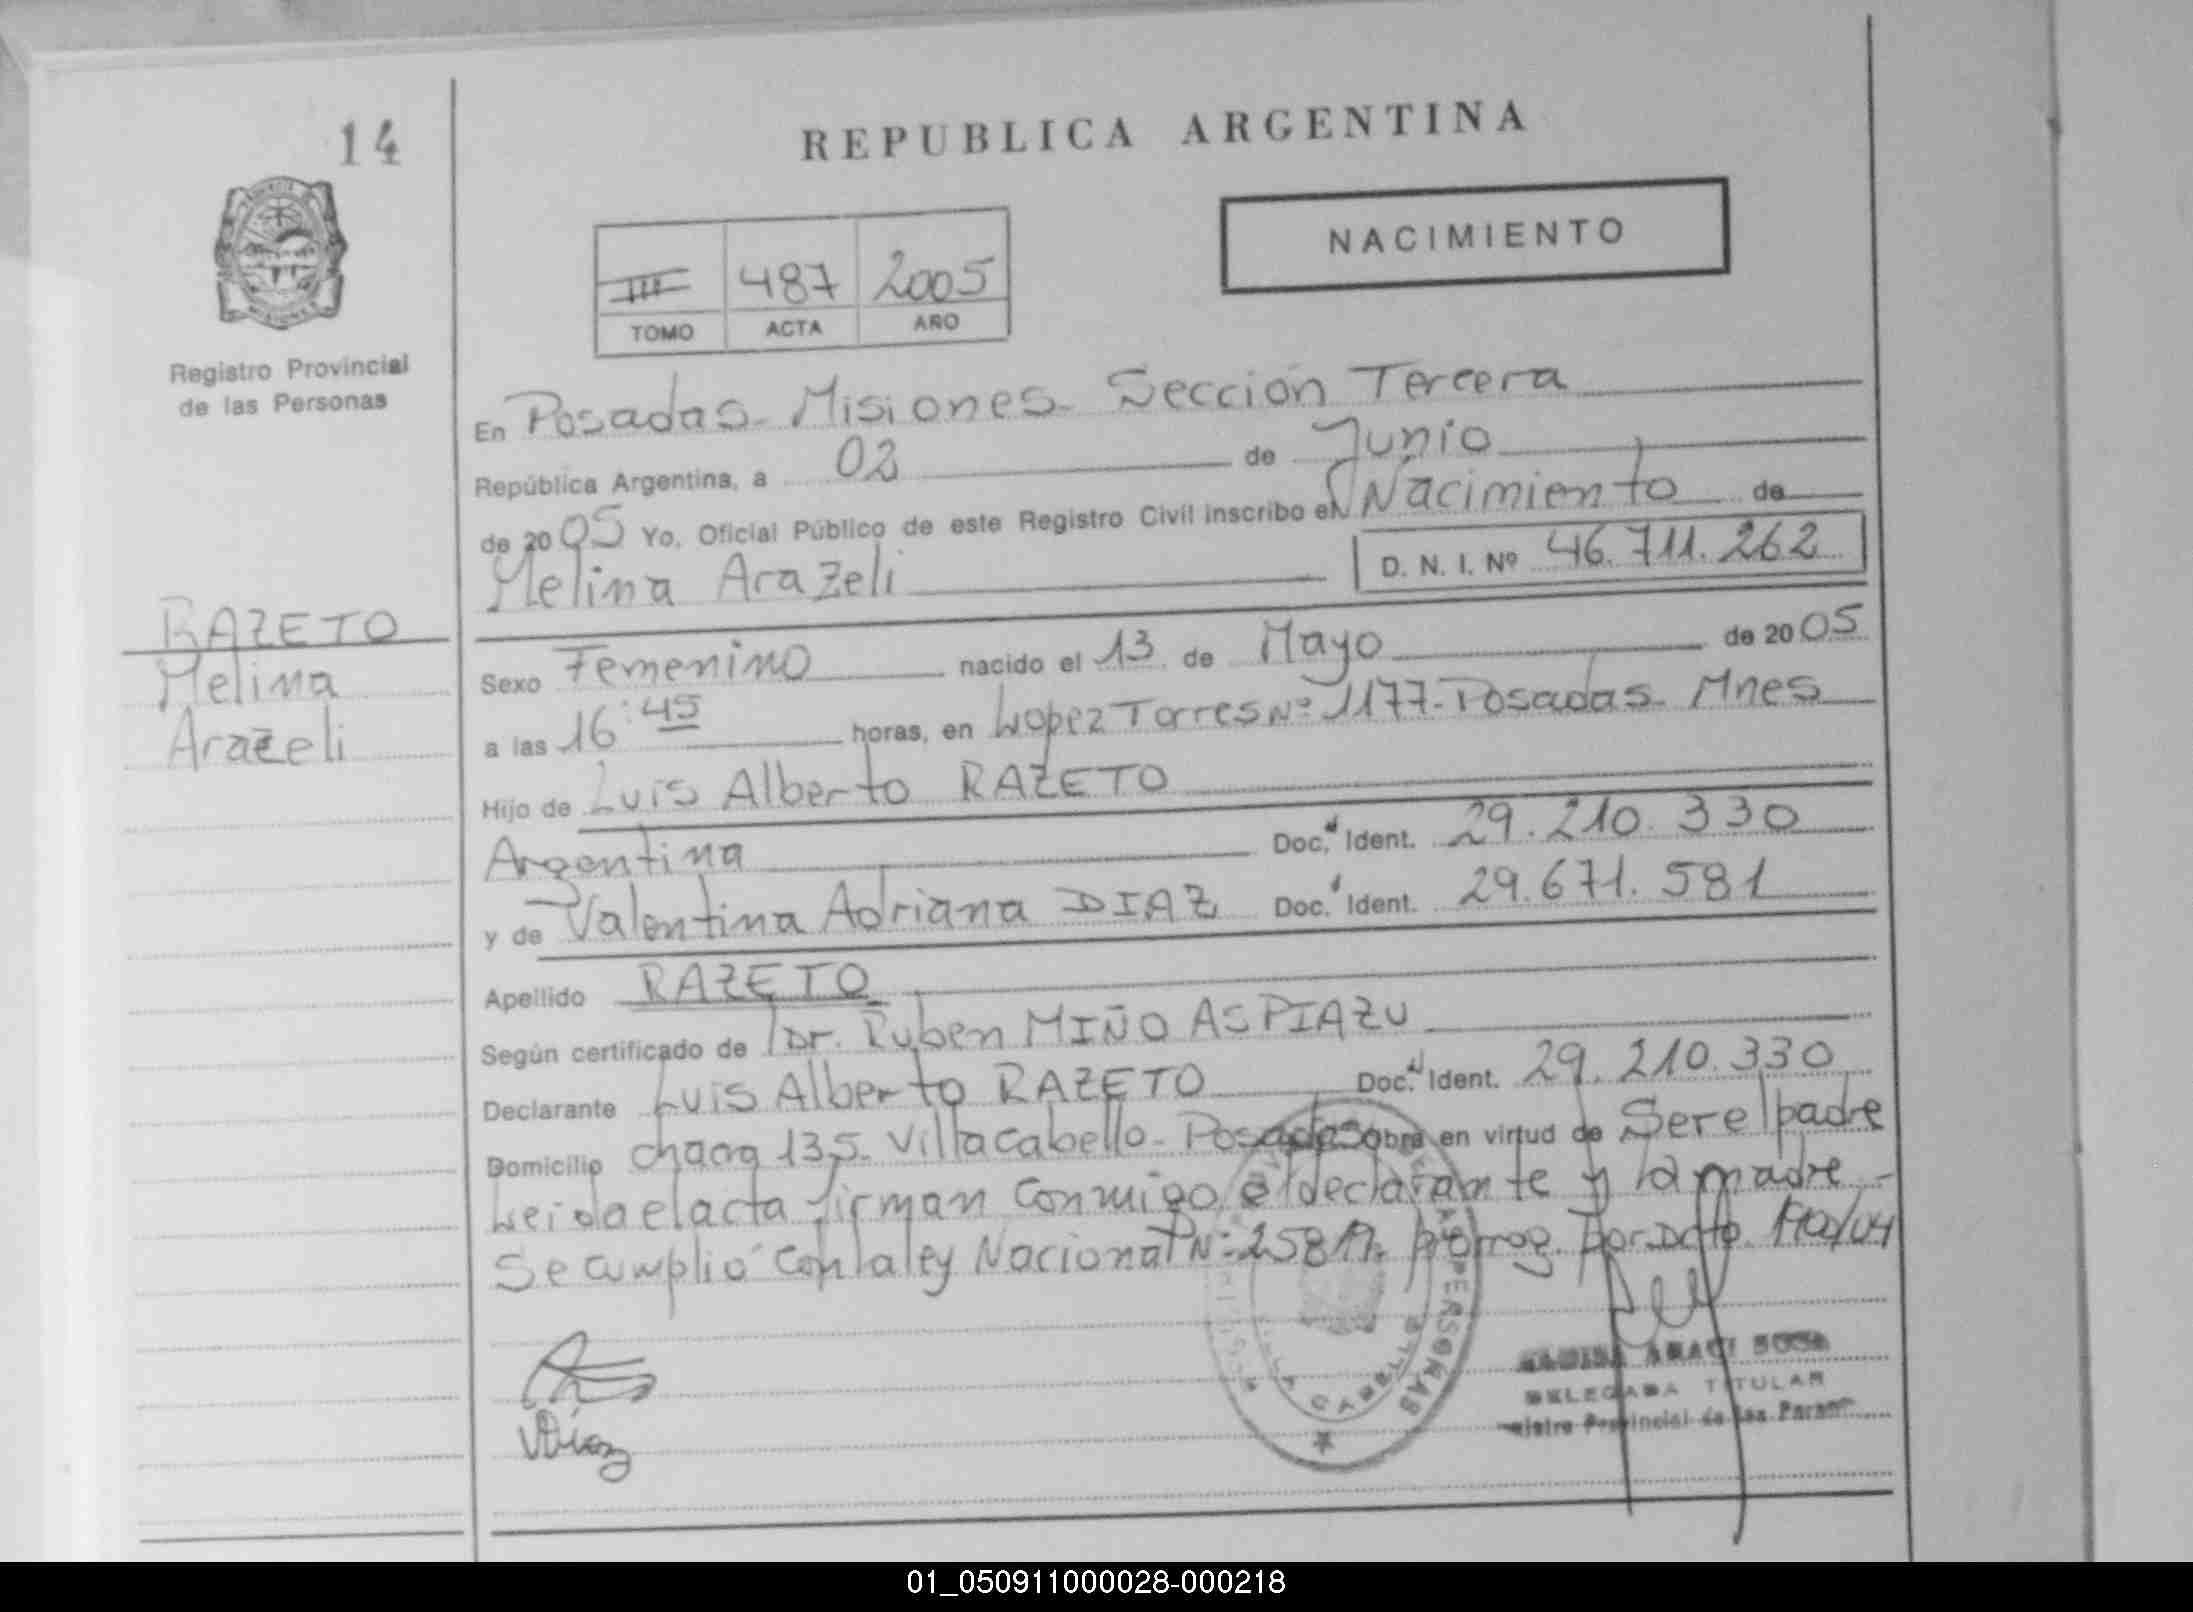 14
REPUBLICA ARGENTINA
NACIMIENTO
III 487 2005
TOMO ACTA AÑO
Registro Provincial
de las Personas
En Posadas - Misiones - Sección Tercera
República Argentina, a 02 de Junio
de 2005 Yo, Oficial Público de este Registro Civil inscribo el Nacimiento de
Melina Arazeli D. N. I. Nº 46.711.262
RAZETO
Melina
Arazeli
Sexo Femenino nacido el 13 de Mayo de 2005
a las 16:45 horas, en Lopez Torres Nº 1177 - Posadas - Mnes
Hijo de Luis Alberto RAZETO
Argentina Doc. Ident. 29.210.330
y de Valentina Adriana DIAZ Doc. Ident. 29.671.581
Apellido RAZETO
Según certificado de Dr. Ruben MIÑO ASPIAZU
Declarante Luis Alberto RAZETO Doc. Ident. 29.210.330
Domicilio chacra 135 - Villa Cabello - Posadas obra en virtud de Ser el padre
Leida el acta firman conmigo el declarante y la madre -
Se cumplió con la ley Nacional Nº 25819. prorrog. por Dcto.
DIaz
PERSONAS
DELEGADA TITULAR
Registro Provincial de las Personas
01_050911000028-000218